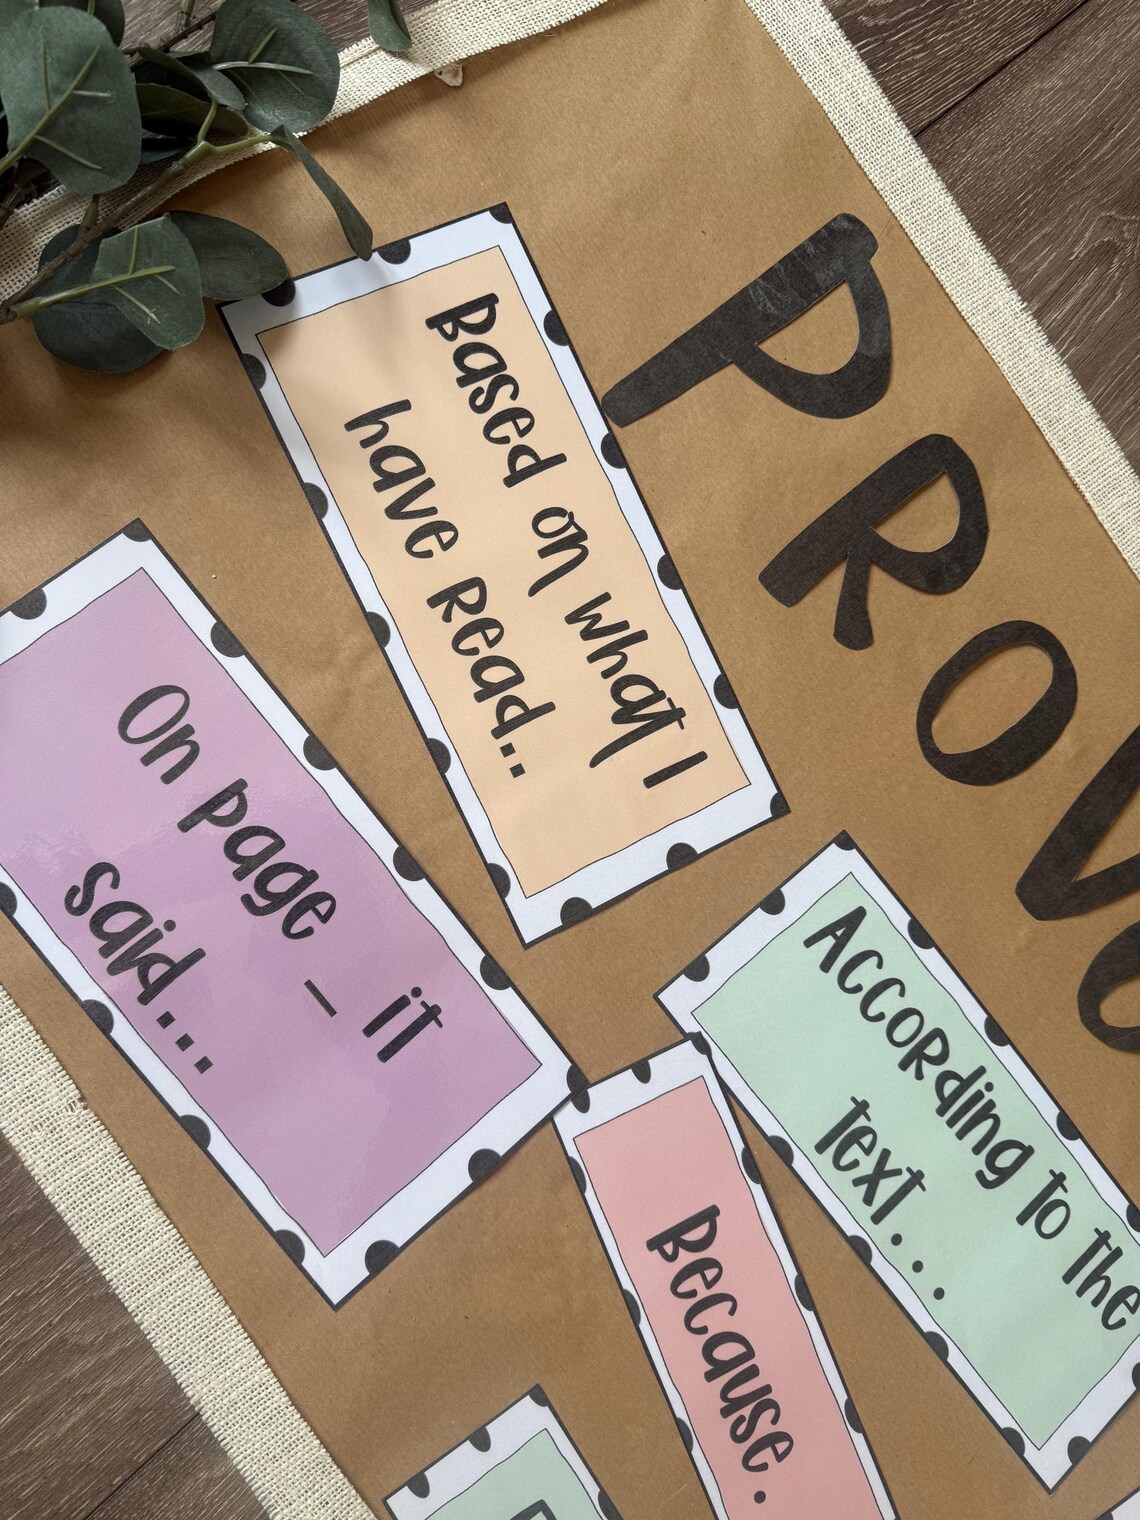 PROV
Based on what I
have read..
On page _ it
said...
According to the
text...
Because.